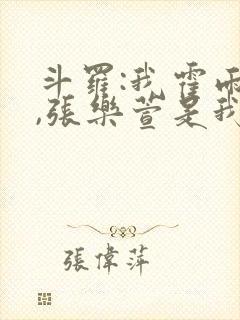 斗羅:我霍雨
,張樂萱是我
張偉萍